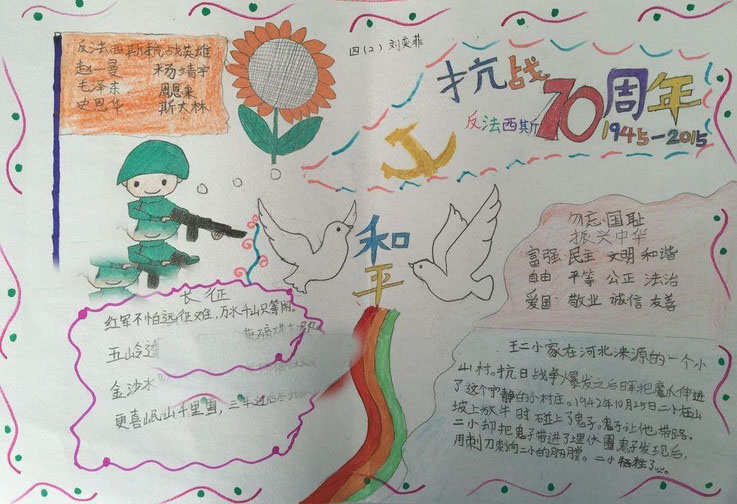 反法西斯抗战英雄
赵一曼 杨靖宇
毛泽东 周恩来
史思华 斯大林
四(2) 刘奕菲
抗战70周年
反法西斯
1945-2015
和
平
勿忘国耻
振兴中华
富强 民主 文明 和谐
自由 平等 公正 法治
爱国 敬业 诚信 友善
长征
红军不怕远征难,万水千山只等闲。
五岭逶
金沙水
更喜岷山千里雪,三军过
王二小家在河北涞源的一个小
山村。抗日战争爆发之后日军把魔爪伸进
了这个宁静的小村庄。1942年10月25日二小在山
坡上放牛时碰上了鬼子。鬼子让他带路。
二小却把鬼子带进了埋伏圈鬼子发现后,
用刺刀刺向二小的胸膛。二小牺牲了…